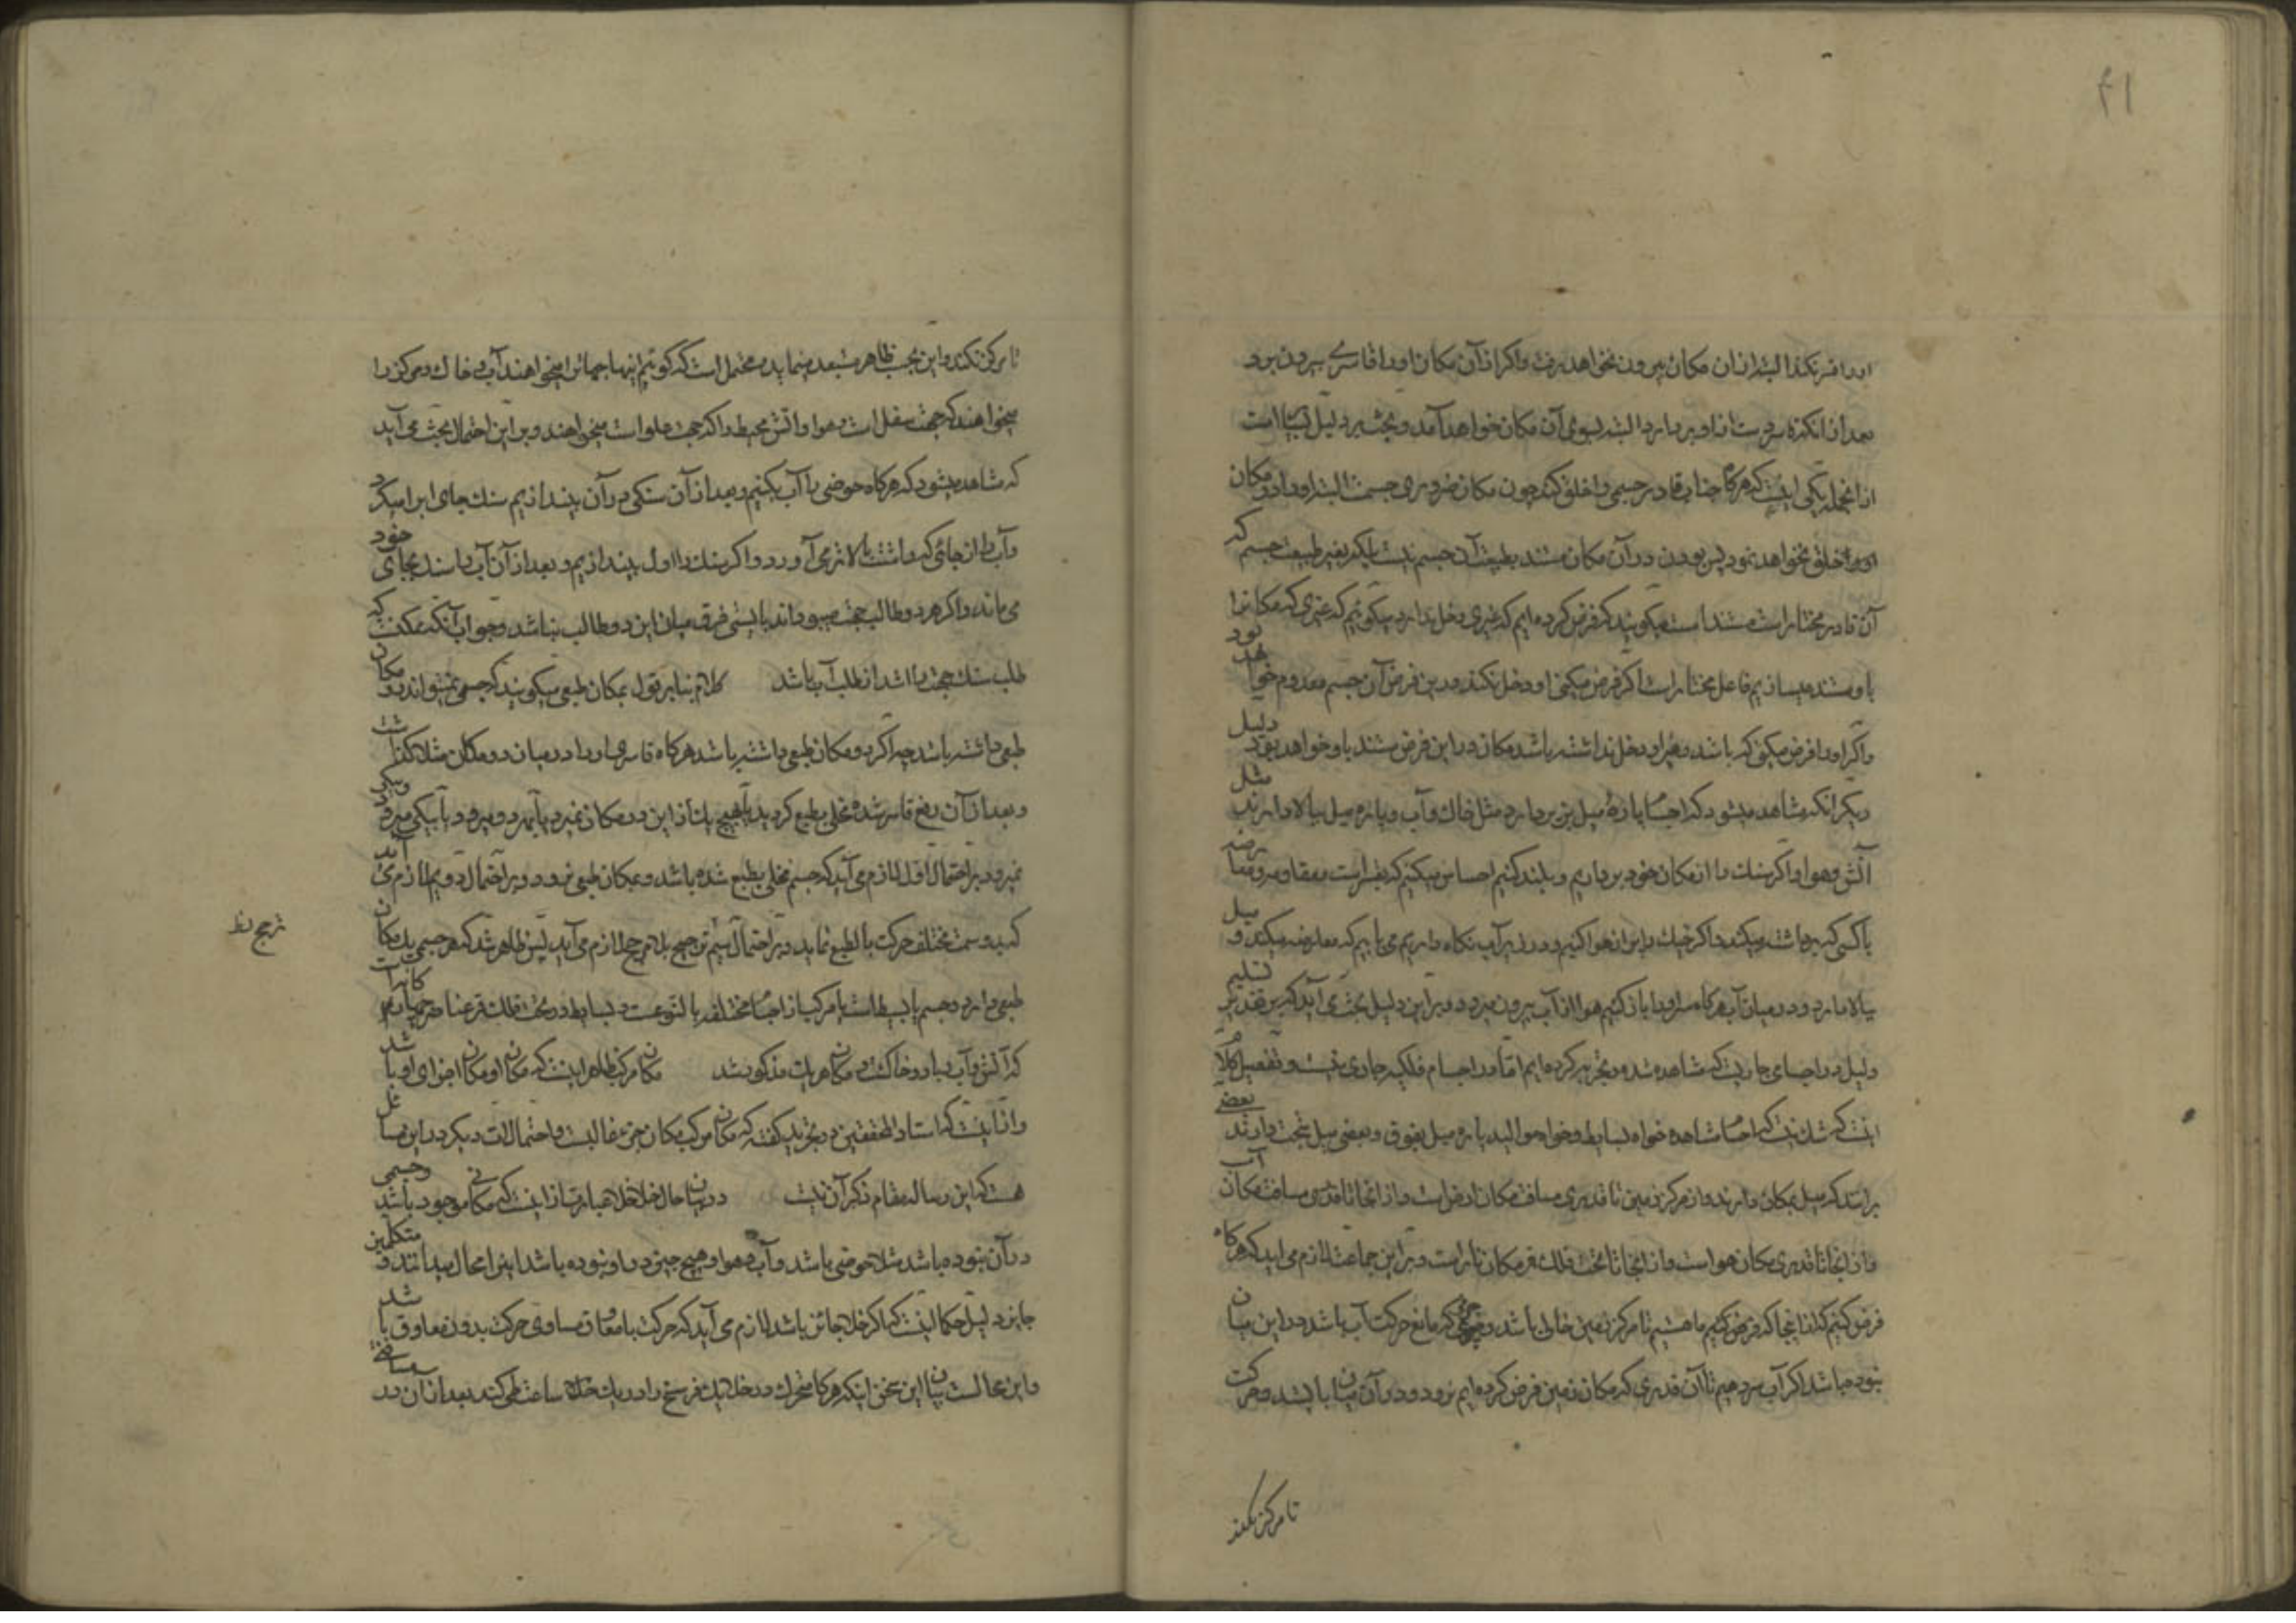 اورا قسر نکند البته از ان مکان بیرون نخواهد رفت واکر از آن مکان اورا قاسری بیرون برد
بعد از انکه قاسر دست از او بر دارد البته بسوی آن مکان خواهد آمد وبحث بر دلیل بسیار است
از انجمله یکی اینست که هرکاه جناب قادر جسمی را خلق کند چون مکان ضروری جسمست البته اورا در مکان
اورا خلق نخواهد نمود پس بودن در آن مکان مستند بطبیعت آن جسم نیست بلکه بغیر طبیعت جسم که
آن قادر مختار است مستند است میکویند که فرض کرده ایم که غیری دخل ندارد میکوئیم که غیری که مکانرا
باو مستند میسازیم فاعل مختار است اکر فرض میکنی او دخل نکند در این فرض آن جسم معدوم خواهد بود
واکر اورا فرض میکنی که باشد وغیر او دخل نداشته باشد مکان در این فرض مستند باو خواهد بود دلیل
دیکر انکه مشاهده میشود که اجسام پارۀ میل بزیر دارد مثل خاک وآب وپاره میل ببالا دارند مثل
آتش وهوا واکر سنک را از مکان خود بر داریم وبلند کنیم احساس میکنیم که بقسر است
با کسی که برداشته میکند واکر خیک را پر از هوا کنیم ودر زیر آب نکاه داریم می یابیم که معارضه میکند ومیل
ببالا دارد ودر میان آب هرکاه سر اورا باز کنیم هوا از آب بیرون میرود وبر این دلیل بحث می آید که بر تقدیر تسلیم
دلیل در اجسامی جاریست که مشاهده شده وتجربه کرده ایم امّا در اجسام فلکیه جاری نیست وتفصیل کلام
اینست که شک نیست که اجسام مشاهده خواه بسایط وخواه موالید پاره میل بفوق وبعضی میل بتحت دارند بعضی
برانند که میل بمکان دارند واز مرکز زمین تا قدری مسافت مکان ارض است واز انجا تا قدری مسافت مکان آب
واز انجا تا قدری مکان هواست واز انجا تا تحت فلک قمر مکان نار است وبر این جماعت لازم می اید که هرکاه
فرض کنیم که از اینجا که فرض کنیم ما هستیم تا مرکز زمین خالی باشد وچیزی که مانع حرکت آب باشد در این میان
نبوده باشد اکر آب سر دهیم تا آن قدری که مکان زمین فرض کرده ایم نرود ودر آن میان بایستد وحرکت
تا مرکز نکند
تا مرکز نکند واین بحسب ظاهر مستبعد مینماید ومحتمل است که کوئیم اینها جهاترا میخواهند آب وخاک ومرکز را
میخواهند که جهت سفل است وهوا واتش محیط را که جهت علو است میخواهند وبر این احتمال بحث می آید
که مشاهده میشود که هرکاه حوضی را آب بکنیم وبعد از آن سنکی در آن بیندازیم سنک جای ابرا میکیرد
وآب را از جائی که داشت بالاتر می آورد واکر سنک را اول بیندازیم وبعد از آن آب را سنک بجای خود
می ماند واکر هر دو طالب جهت میبودند بایستی فرق میان این دو طالب نباشد وجواب آنکه ممکنست که
طلب سنک جهت را اشد از طلب آب باشد کلام بنا بر قول بمکان طبیعی میکویند که جسمی نمیتواند دو مکان
طبیعی داشته باشد چه اکر دو مکان طبیعی داشته باشد هرکاه قاسری اورا در میان دو مکان مثلا کذاشت
وبعد از آن رفع قاسر شده مخلی بطبع کردید یا هیچ یک از این دو مکان نمیرود یا بهر دو میرود یا بیکی میرود وبیکی
نمیرود بر احتمال اول لازم می آید که جسم مخلی بطبع شده باشد وبمکان طبیعی نرود وبر احتمال دویم لازم می آید
که بدو سمت مختلف حرکت بالطبع نماید وبر احتمال سیّم ترجیح بلا مرجح لازم می آید پس ظاهر شد که هر جسمی یک مکان
ترجیح نظ
طبیعی دارد وجسم یا بسیط است یا مرکب از اجسام مختلفه بالنوعست وبسایط در تحت فلک قمر عناصر چهارم کانه است
که آتش وآب وباد وخاکست ومکان هر یک مذکور شد مکان مرکب ظاهر اینست که مکان او مکان اجزای او باشد
واز اینست که استاد المحققین در تجرید کفته که مکان مرکب مکان جزء غالبست واحتمالات دیکر در این مسائل
هست که این رساله مقام ذکر آن نیست در بیان حال خلا خلا عبارت از اینست که مکانی موجود باشد وجسمی
در آن نبوده باشد مثلا حوضی باشد وآب وهوا وهیچ چیز در او نبوده باشد اینرا محال میدانند ومتکلمین
جایز دلیل حکما اینست که اکر خلا جائز باشد لازم می آید که حرکت با معاوق مساوی حرکت بدون معاوق باشد
واین محالست بیان این سخن اینکه هرکاه متحرک در خلا یک فرسخ را در یک ساعت طی کند بعد از ان در